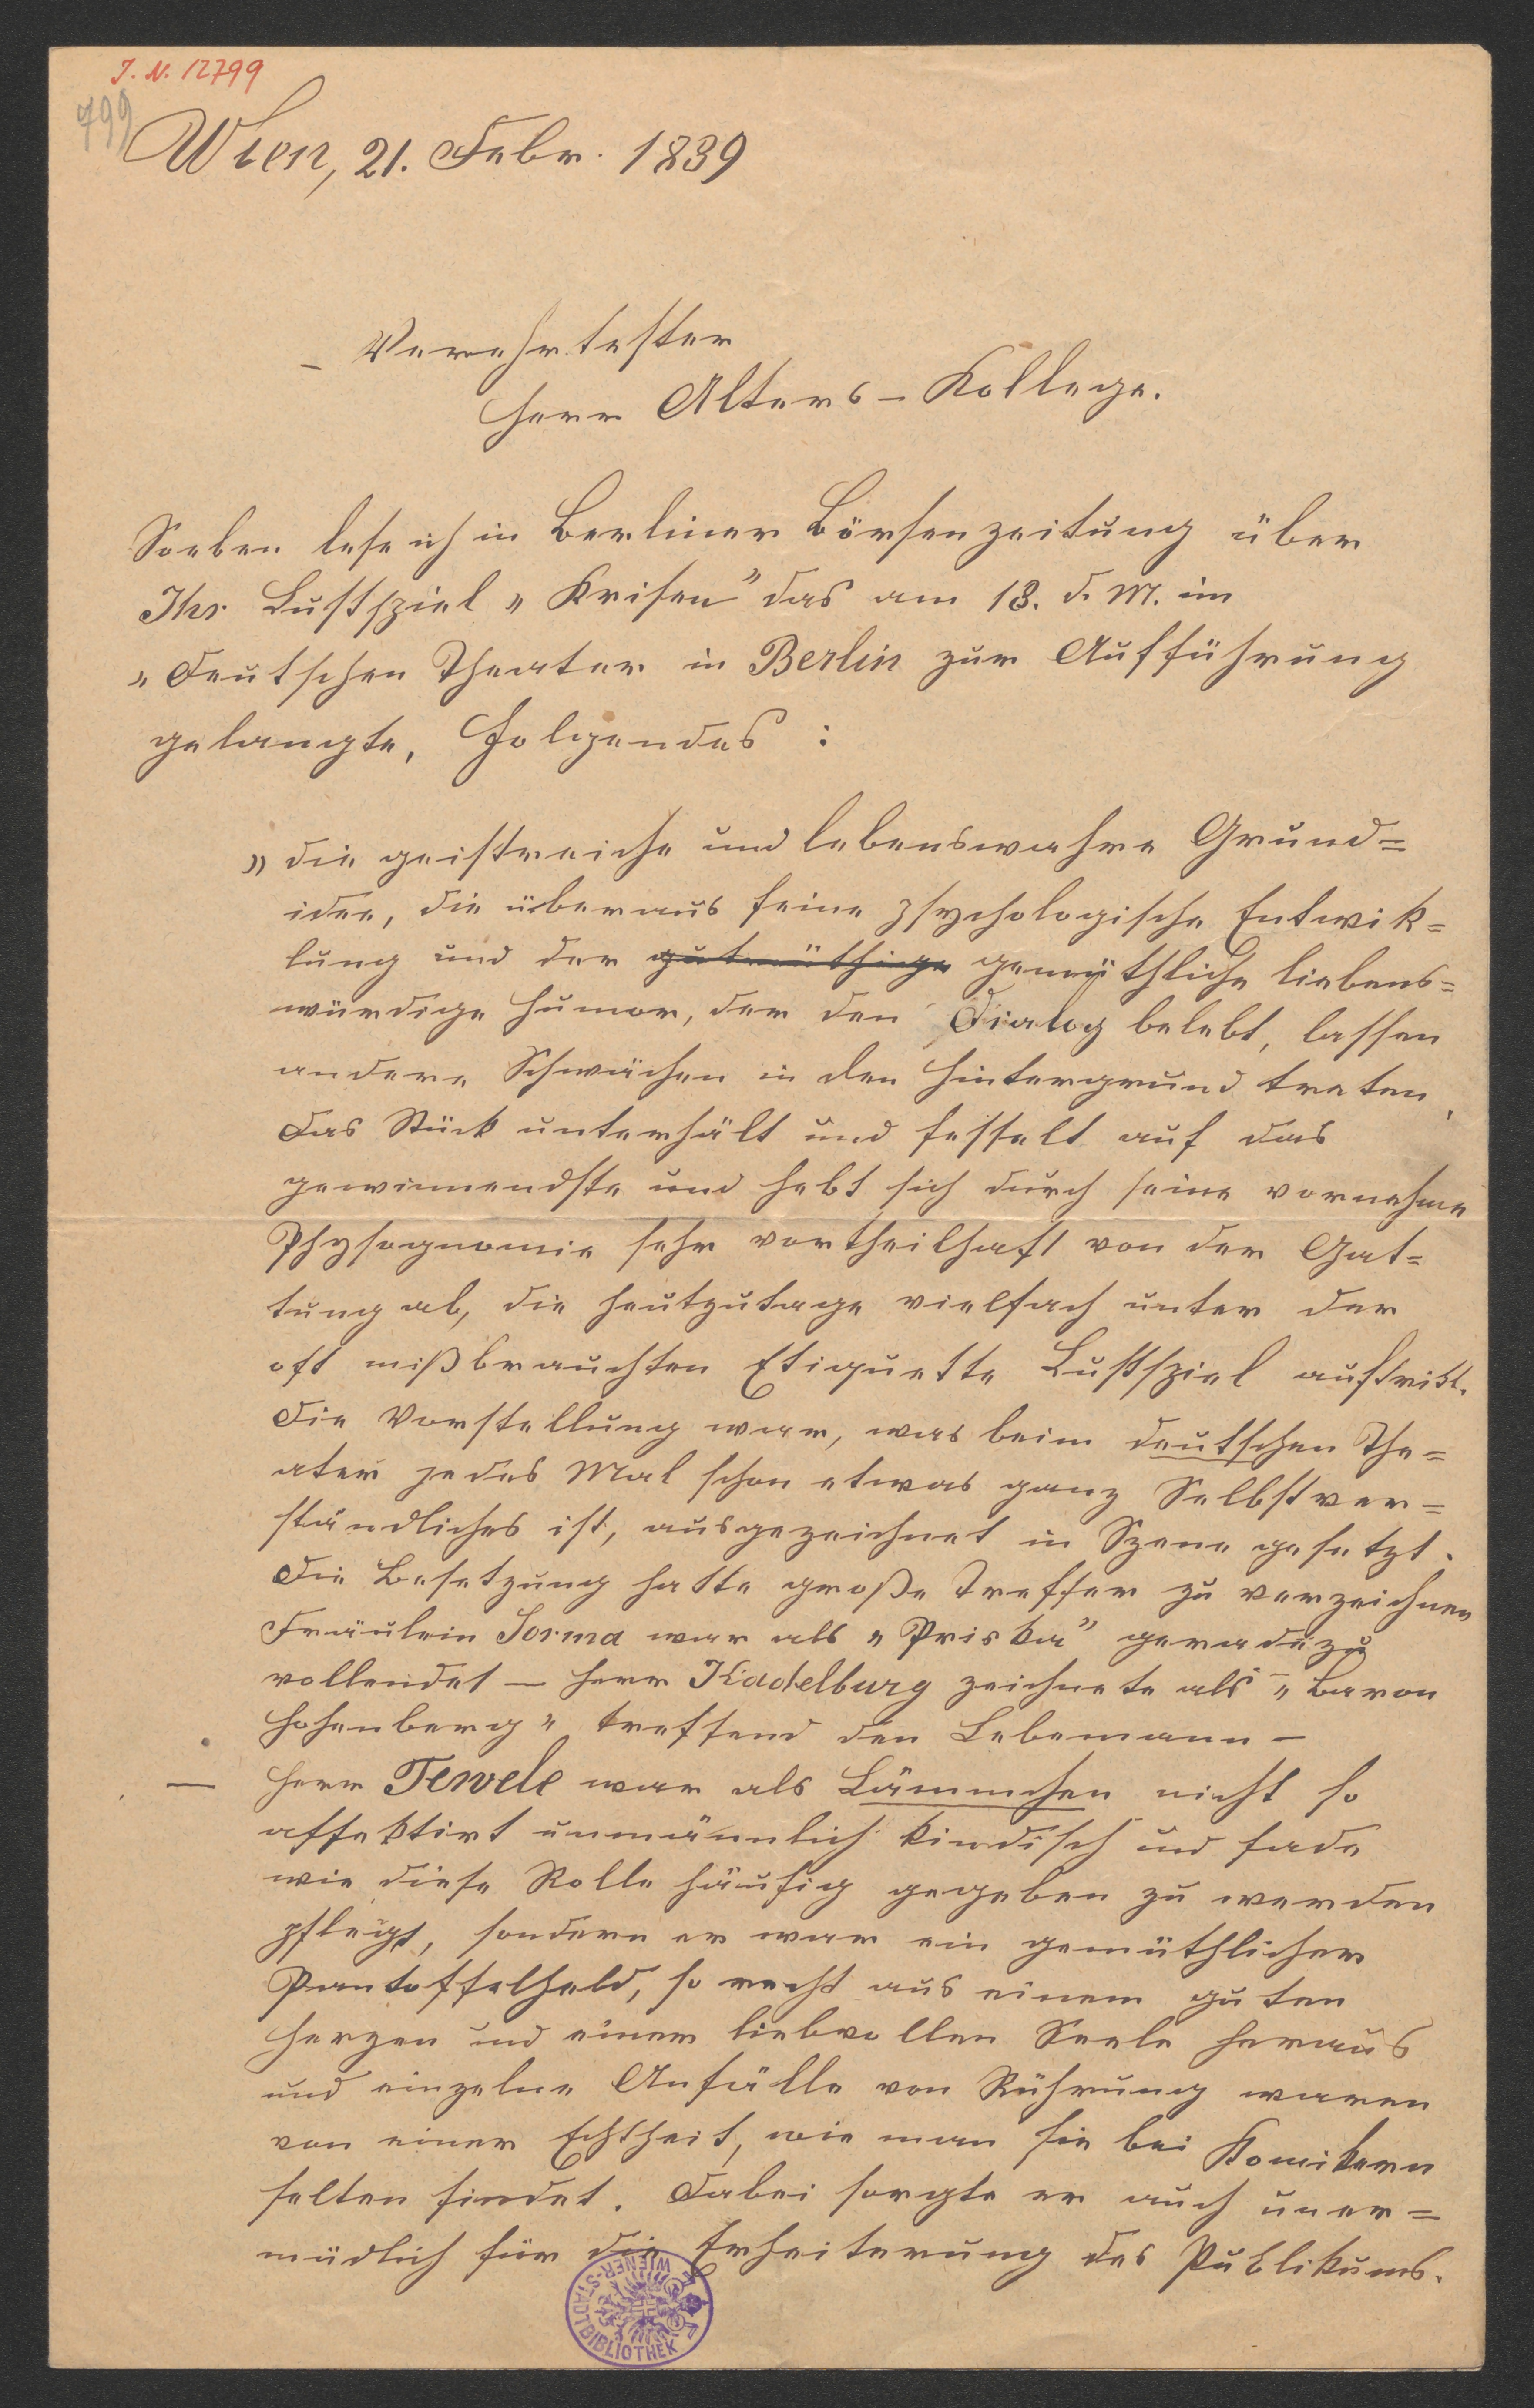 J. N. 12799
799
Wien, 21. Febr. 1889
Verehrtester
Herr Alters-Kollege.
Soeben lese ich in Berliner Börsenzeitung über
Ihr Lustspiel „Krisen" das am 18. d. M. im
„Deutschen Theater in Berlin zur Aufführung
gelangte, Folgendes :
„die geistreiche und lebenswahre Grund=
idee, die überaus feine psychologische Entwik=
lung und der gutmüthige gemüthliche liebens=
würdige Humor, der den Dialog belebt, lassen
andere Schwächen in den Hintergrund treten,
das Stück unterhält und fesselt auf das
gewinnendste und hebt sich durch seine vornehme
Physognomie sehr vortheilhaft von der Gat=
tung ab, die heutzutage vielfach unter der
oft mißbrauchten Etiquette Lustspiel auftritt.
Die Vorstellung war, was beim deutschen The=
ater jedes Mal schon etwas ganz Selbstver=
ständliches ist, ausgezeichnet in Szene gesetzt.
Die Besetzung hatte große Treffer zu verzeichnen
Fräulein Sorma war als „Priska" geradezu
vollendet — Herr Kadelburg zeichnete als „Baron
Hohenberg" treffend den Lebemann —
— Herr Tewele war als Lämmchen nicht so
affektirt unmännlich kindisch und fade
wie diese Rolle häufig gegeben zu werden
pflegt, sondern er war ein gemüthlicher
Pantoffelheld, so recht aus einem guten
Herzen und einer liebvollen Seele heraus
und einzelne Anfälle von Rührung waren
von einer Echtheit, wie man sie bei Komikern
selten findet. Dabei sorgte er auch uner=
müdlich für die Erheiterung des Publikums.
WIENER-STADTBIBLIOTHEK